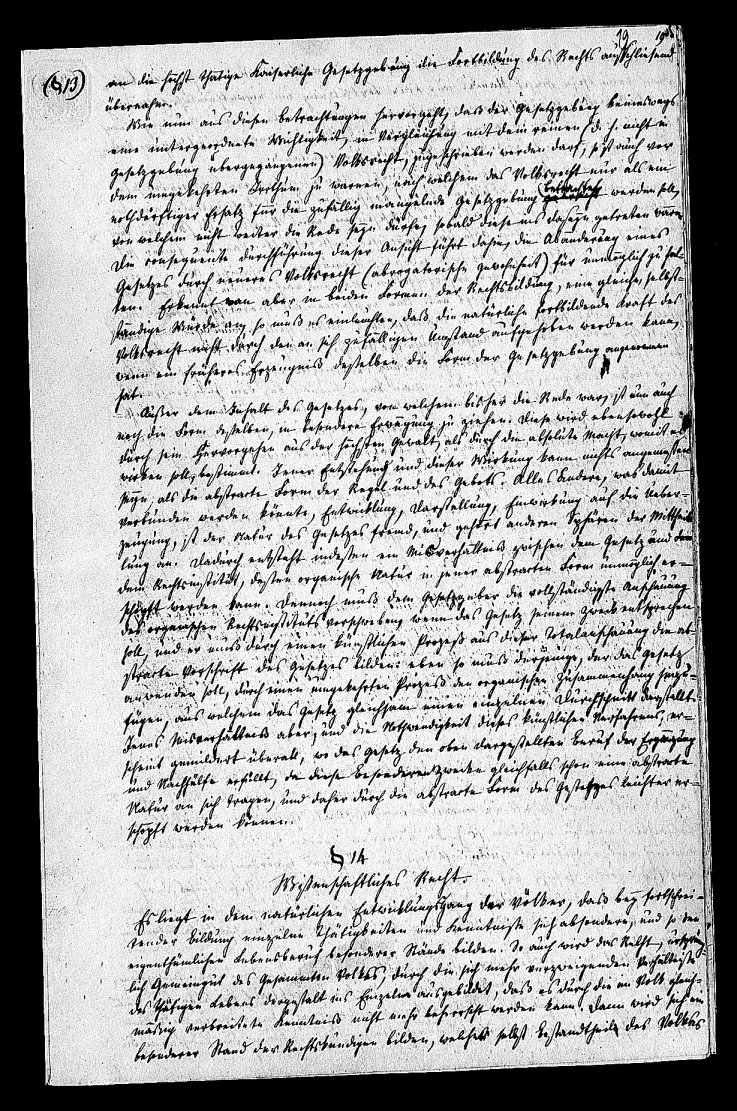 19 19
(§13)
an die höchst thätige Kaiserliche Gesetzgebung die Fortbildung des Rechts ausschliesend
übernahm.
Wie nun aus diesen Betrachtungen hervorgeht, daß der Gesetzgebung keineswegs
eine untergeordnete Wichtigkeit, in Vergleichung mit dem reinen (d. h. nicht in
Gesetzgebung übergegangenen) Volksrecht, zugeschrieben werden darf, so ist auch vor
dem umgekehrten Irrthum zu warnen, nach welchem das Volksrecht nur als ein
nothdürftiger Ersatz für die zufällig mangelnde Gesetzgebung betrachtet werden soll,
von welchem nicht weiter die Rede seyn dürfe, sobald diese ins Daseyn getreten wäre.
Die consequente Durchführung dieser Ansicht führt dahin, die Abänderung eines
Gesetzes durch neueres Volksrecht (abrogatorische Gewohnheit) für unmöglich zu hal-
ten. Erkennt man aber in beiden Formen der Rechtsbildung, eine gleiche, selbst-
ständige Würde an, so muß es einleuchten, daß die natürliche fortbildende Kraft des
Volksrecht nicht durch den an sich zufälligen Umstand aufgehoben werden kann,
wenn ein früheres Erzeugniß desselben die Form der Gesetzgebung angenommen
hat.
Außer dem Inhalt des Gesetzes, von welchem bisher die Rede war, ist nun auch
noch die Form desselben, in besondere Erwägung zu ziehen. Diese wird ebensowohl
durch sein Hervorgehen aus der höchsten Gewalt, als durch die absolute Macht, womit es
wirken soll, bestimmt. Jener Entstehung und dieser Wirkung kann nichts angemessen
seyn, als die abstracte Form der Regel und des Gebots. Alles Andere, was damit
verbunden werden könnte, Entwicklung, Darstellung, Einwirkung auf die Ueber-
zeugung, ist der Natur des Gesetzes fremd, und gehört anderen Sphären der Mitthei-
lung an. Dadurch entsteht indessen ein Misverhältniß zwischen dem Gesetz und
dem Rechtsinstitut, dessen organische Natur in jener abstracten Form unmöglich er-
schöpft werden kann. Dennoch muß dem Gesetzgeber die vollständigste Anschauung
des organischen Rechtsinstituts vorschweben, wenn das Gesetz seinem Zweck entsprechen
soll, und er muß durch einen künstlichen Prozeß aus dieser Totalanschauung die ab-
stracte Vorschrift des Gesetzes bilden: eben so muß derjenige, der das Gesetz
anwenden soll, durch einen umgekehrten Prozeß den organischen Zusammenhang hinzu-
fügen, aus welchem das Gesetz gleichsam einen einzelnen Durchschnitt darstellt.
Jenes Misverhältniß aber, und die Nothwendigkeit dieses künstlichen Verfahrens, er-
scheint gemildert überall, wo das Gesetz den oben dargestellten Beruf der Ergänzung
und Nachhülfe erfüllt, da diese besonderen Zwecke gleichfalls schon eine abstracte
Natur an sich tragen, und daher durch die abstracte Form des Gesetzes leichter er-
schöpft werden können.
§ 14
Wissenschaftliches Recht.
Es liegt in dem natürlichen Entwicklungsgang der Völker, daß bey fortschrei-
tender Bildung einzelne Thätigkeiten und Kenntnisse sich absondern, und so den
eigenthümlichen Lebensberuf besonderer Stände bilden. So auch wird das Recht, ursprüng-
lich Gemeingut des Gesammten Volkes, durch die sich mehr verzweigenden Verhältnisse
des thätigen Lebens dergestalt ins Einzelne ausgebildet, daß es durch die im Volk gleich-
mäßig verbreitete Kenntniß nicht mehr beherrscht werden kann. Dann wird sich ein
besonderer Stand der Rechtskundigen bilden, welcher selbst Bestandtheil des Volkes